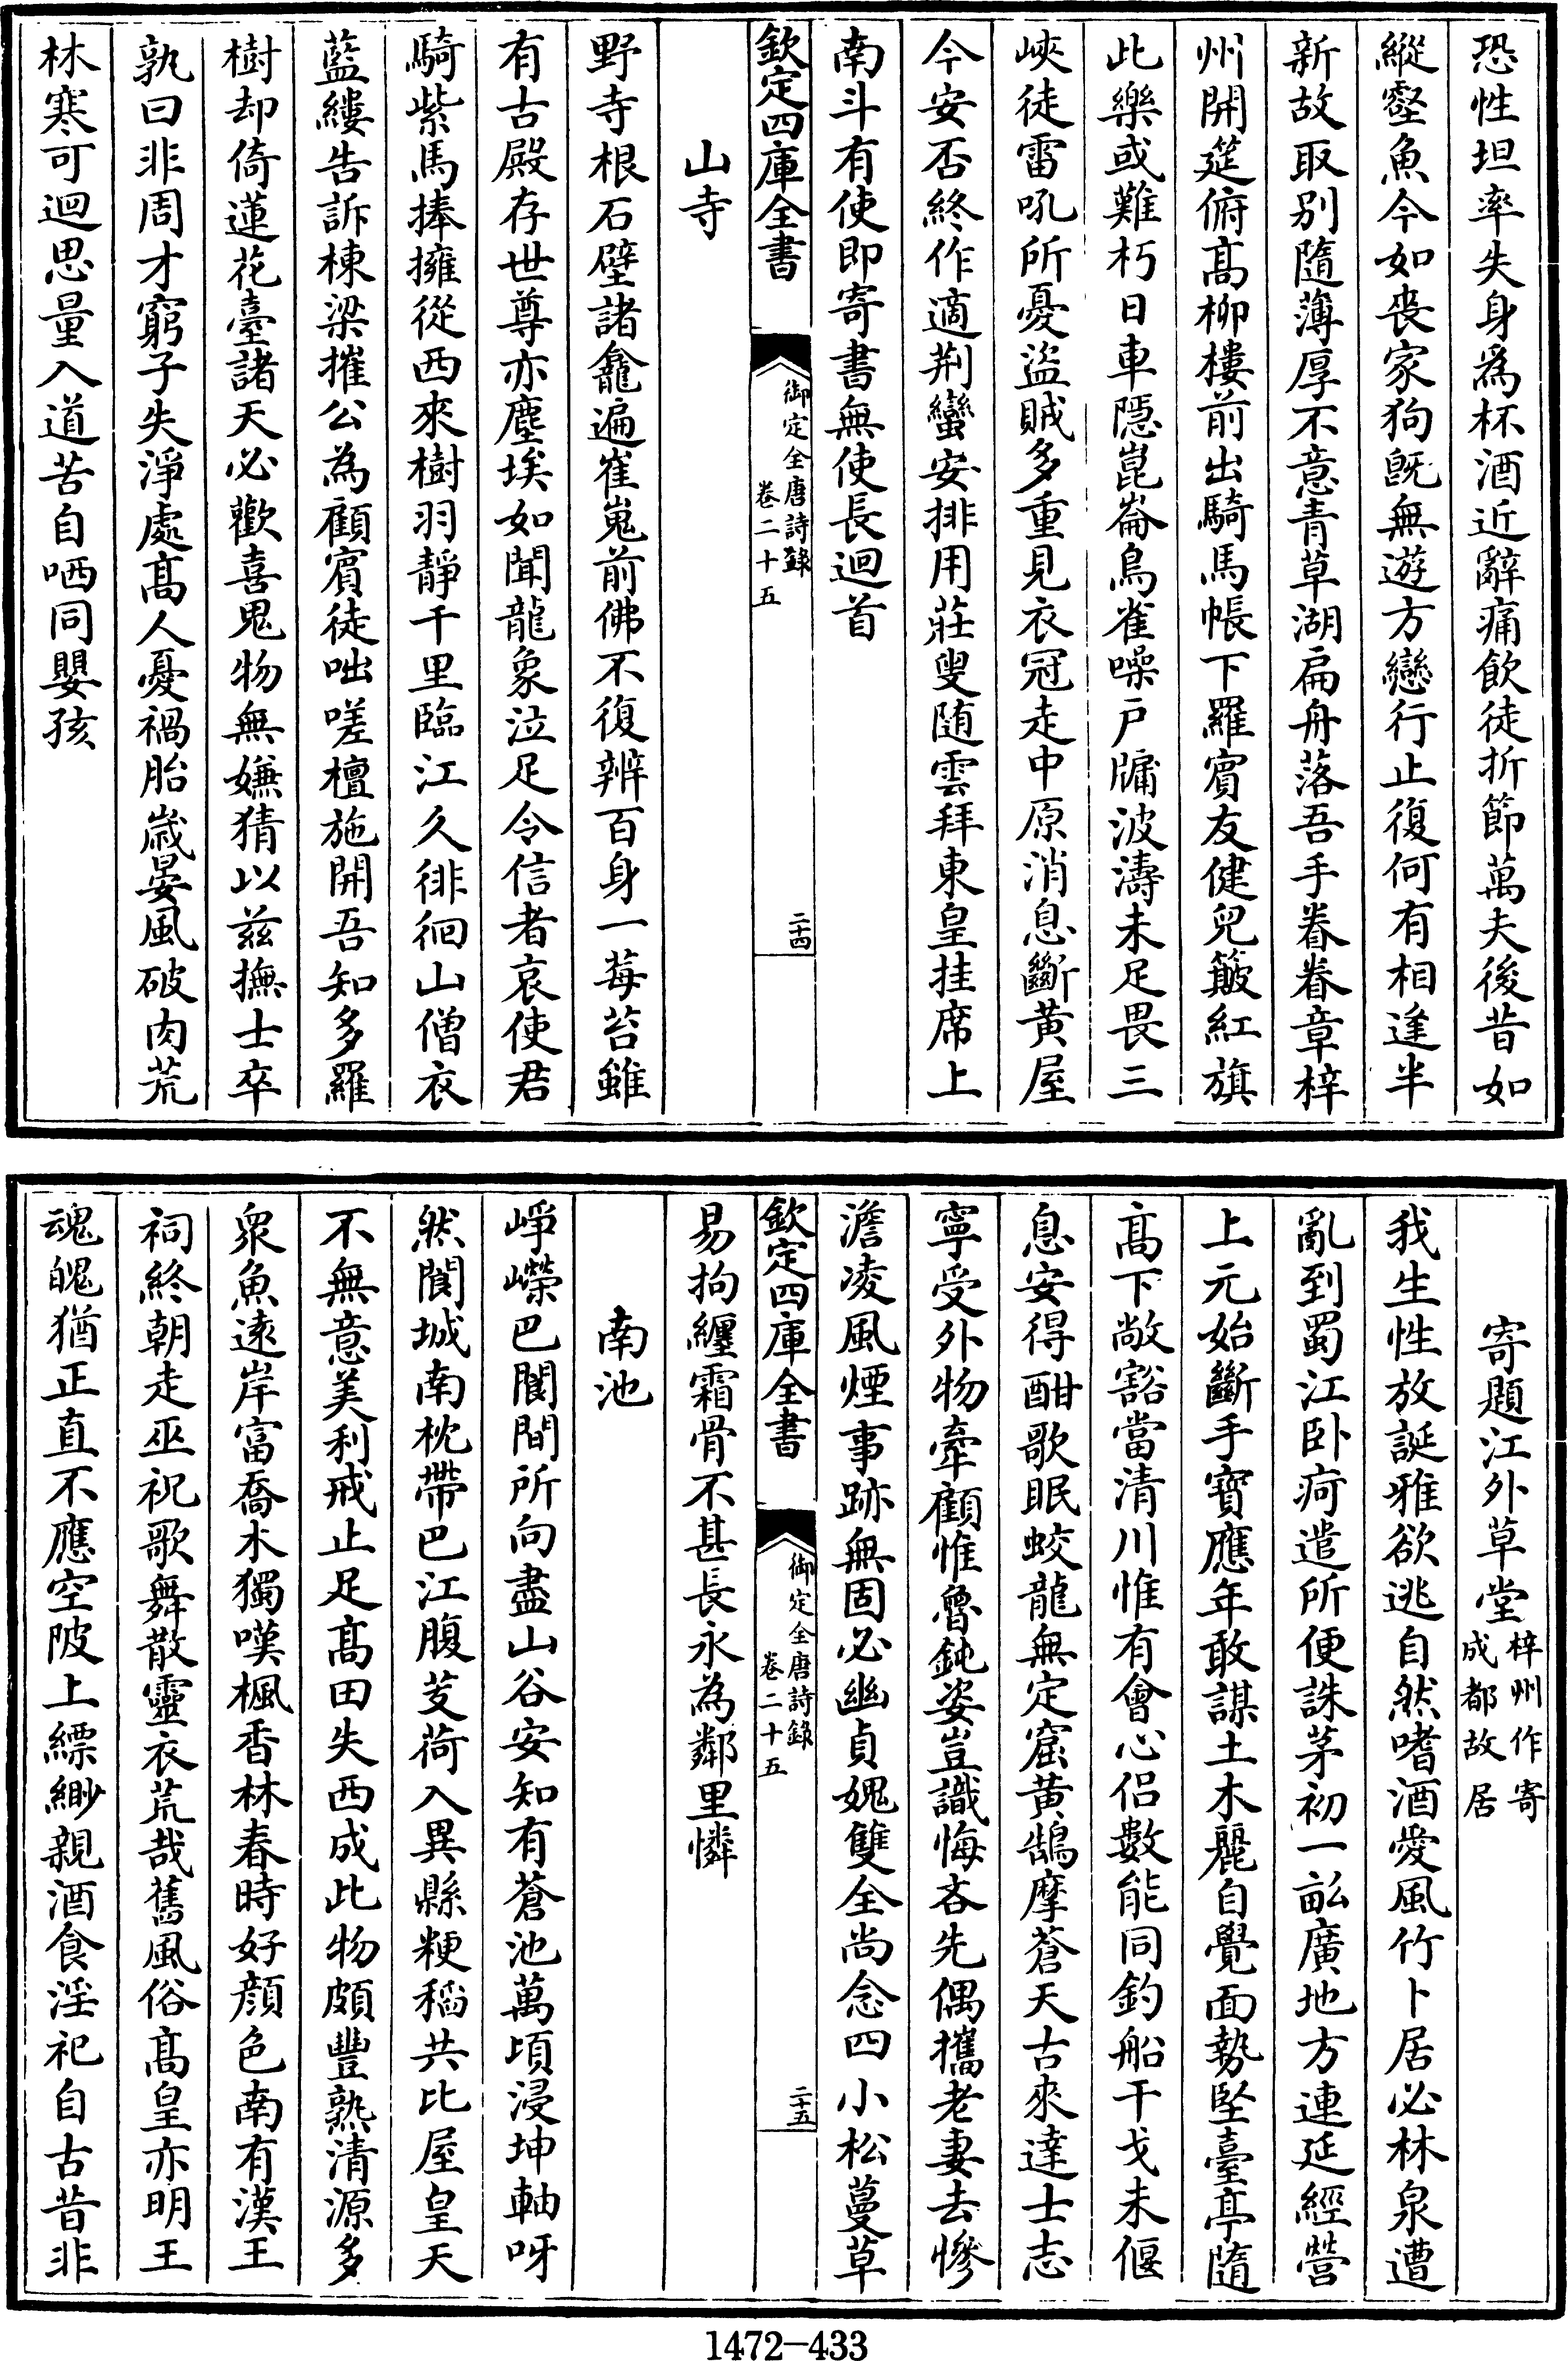 恐性坦率失身爲杯酒近辭痛飲徒折節萬夫後昔如
縱壑魚今如喪家狗旣無遊方戀行止復何有相逢半
新故取别隨薄厚不意青草湖扁舟落吾手眷眷章梓
州開筵俯髙柳樓前出騎馬帳下羅賓友健兒簸紅旗
此樂或難朽日車隱崑崙鳥雀噪戸牖波濤未足畏三
峽徒雷吼所憂盜賊多重見衣冠走中原消息斷黄屋
今安否終作適荆蠻安排用莊叟随雲拜東皇挂席上
南斗有使即寄書無使長迴首
欽定四庫全書
御定全唐詩録
卷二十五
二十四
山寺
野寺根石壁諸龕遍崔嵬前佛不復辨百身一莓苔雖
有古殿存世尊亦塵埃如聞龍象泣足令信者哀使君
騎紫馬捧擁從西來樹羽靜千里臨江久徘徊山僧衣
藍縷告訴棟梁摧公為顧賓徒咄嗟檀施開吾知多羅
樹却倚蓮花臺諸天必歡喜鬼物無嫌猜以兹撫士卒
孰曰非周才窮子失淨處髙人憂禍胎歲晏風破肉荒
林寒可迴思量入道苦自哂同嬰孩
寄題江外草堂
梓州作寄
成都故居
我生性放誕雅欲逃自然嗜酒愛風竹卜居必林泉遭
亂到蜀江卧疴遣所便誅茅初一畝廣地方連延經營
上元始斷手寳應年敢謀土木麗自覺面勢堅臺亭隨
髙下敞豁當清川惟有會心侣數能同釣船干戈未偃
息安得酣歌眠蛟龍無定窟黄鵠摩蒼天古來達士志
寧受外物牽顧惟魯鈍姿豈識悔吝先偶攜老妻去慘
澹凌風煙事跡無固必幽貞媿雙全尚念四小松蔓草
欽定四庫全書
御定全唐詩錄
卷二十五
二十五
易拘纒霜骨不甚長永為鄰里憐
南池
崢嶸巴閬間所向盡山谷安知有蒼池萬頃浸坤軸呀
然閬城南枕帶巴江腹芰荷入異縣粳稻共比屋皇天
不無意美利戒止足髙田失西成此物頗豐熟清源多
衆魚逺岸富喬木獨嘆楓香林春時好顔色南有漢王
祠終朝走巫祝歌舞散靈衣荒哉舊風俗髙皇亦明王
魂魄猶正直不應空陂上縹緲親酒食淫祀自古昔非
1472-433